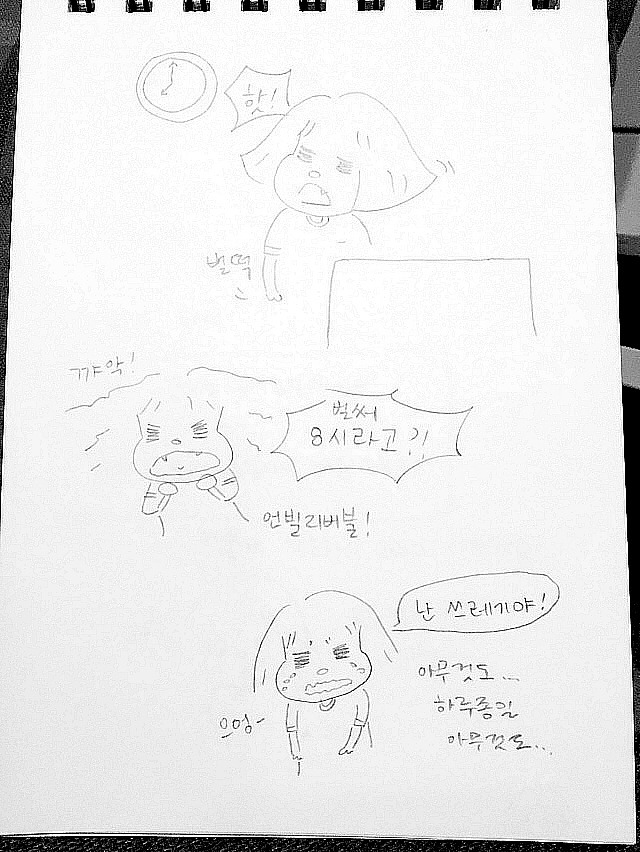 핫!
벌떡
꺄악!
벌써
8시라고?!
언빌리버블!
난 쓰레기야!
아무것도...
하루종일
아무것도...
으엉-